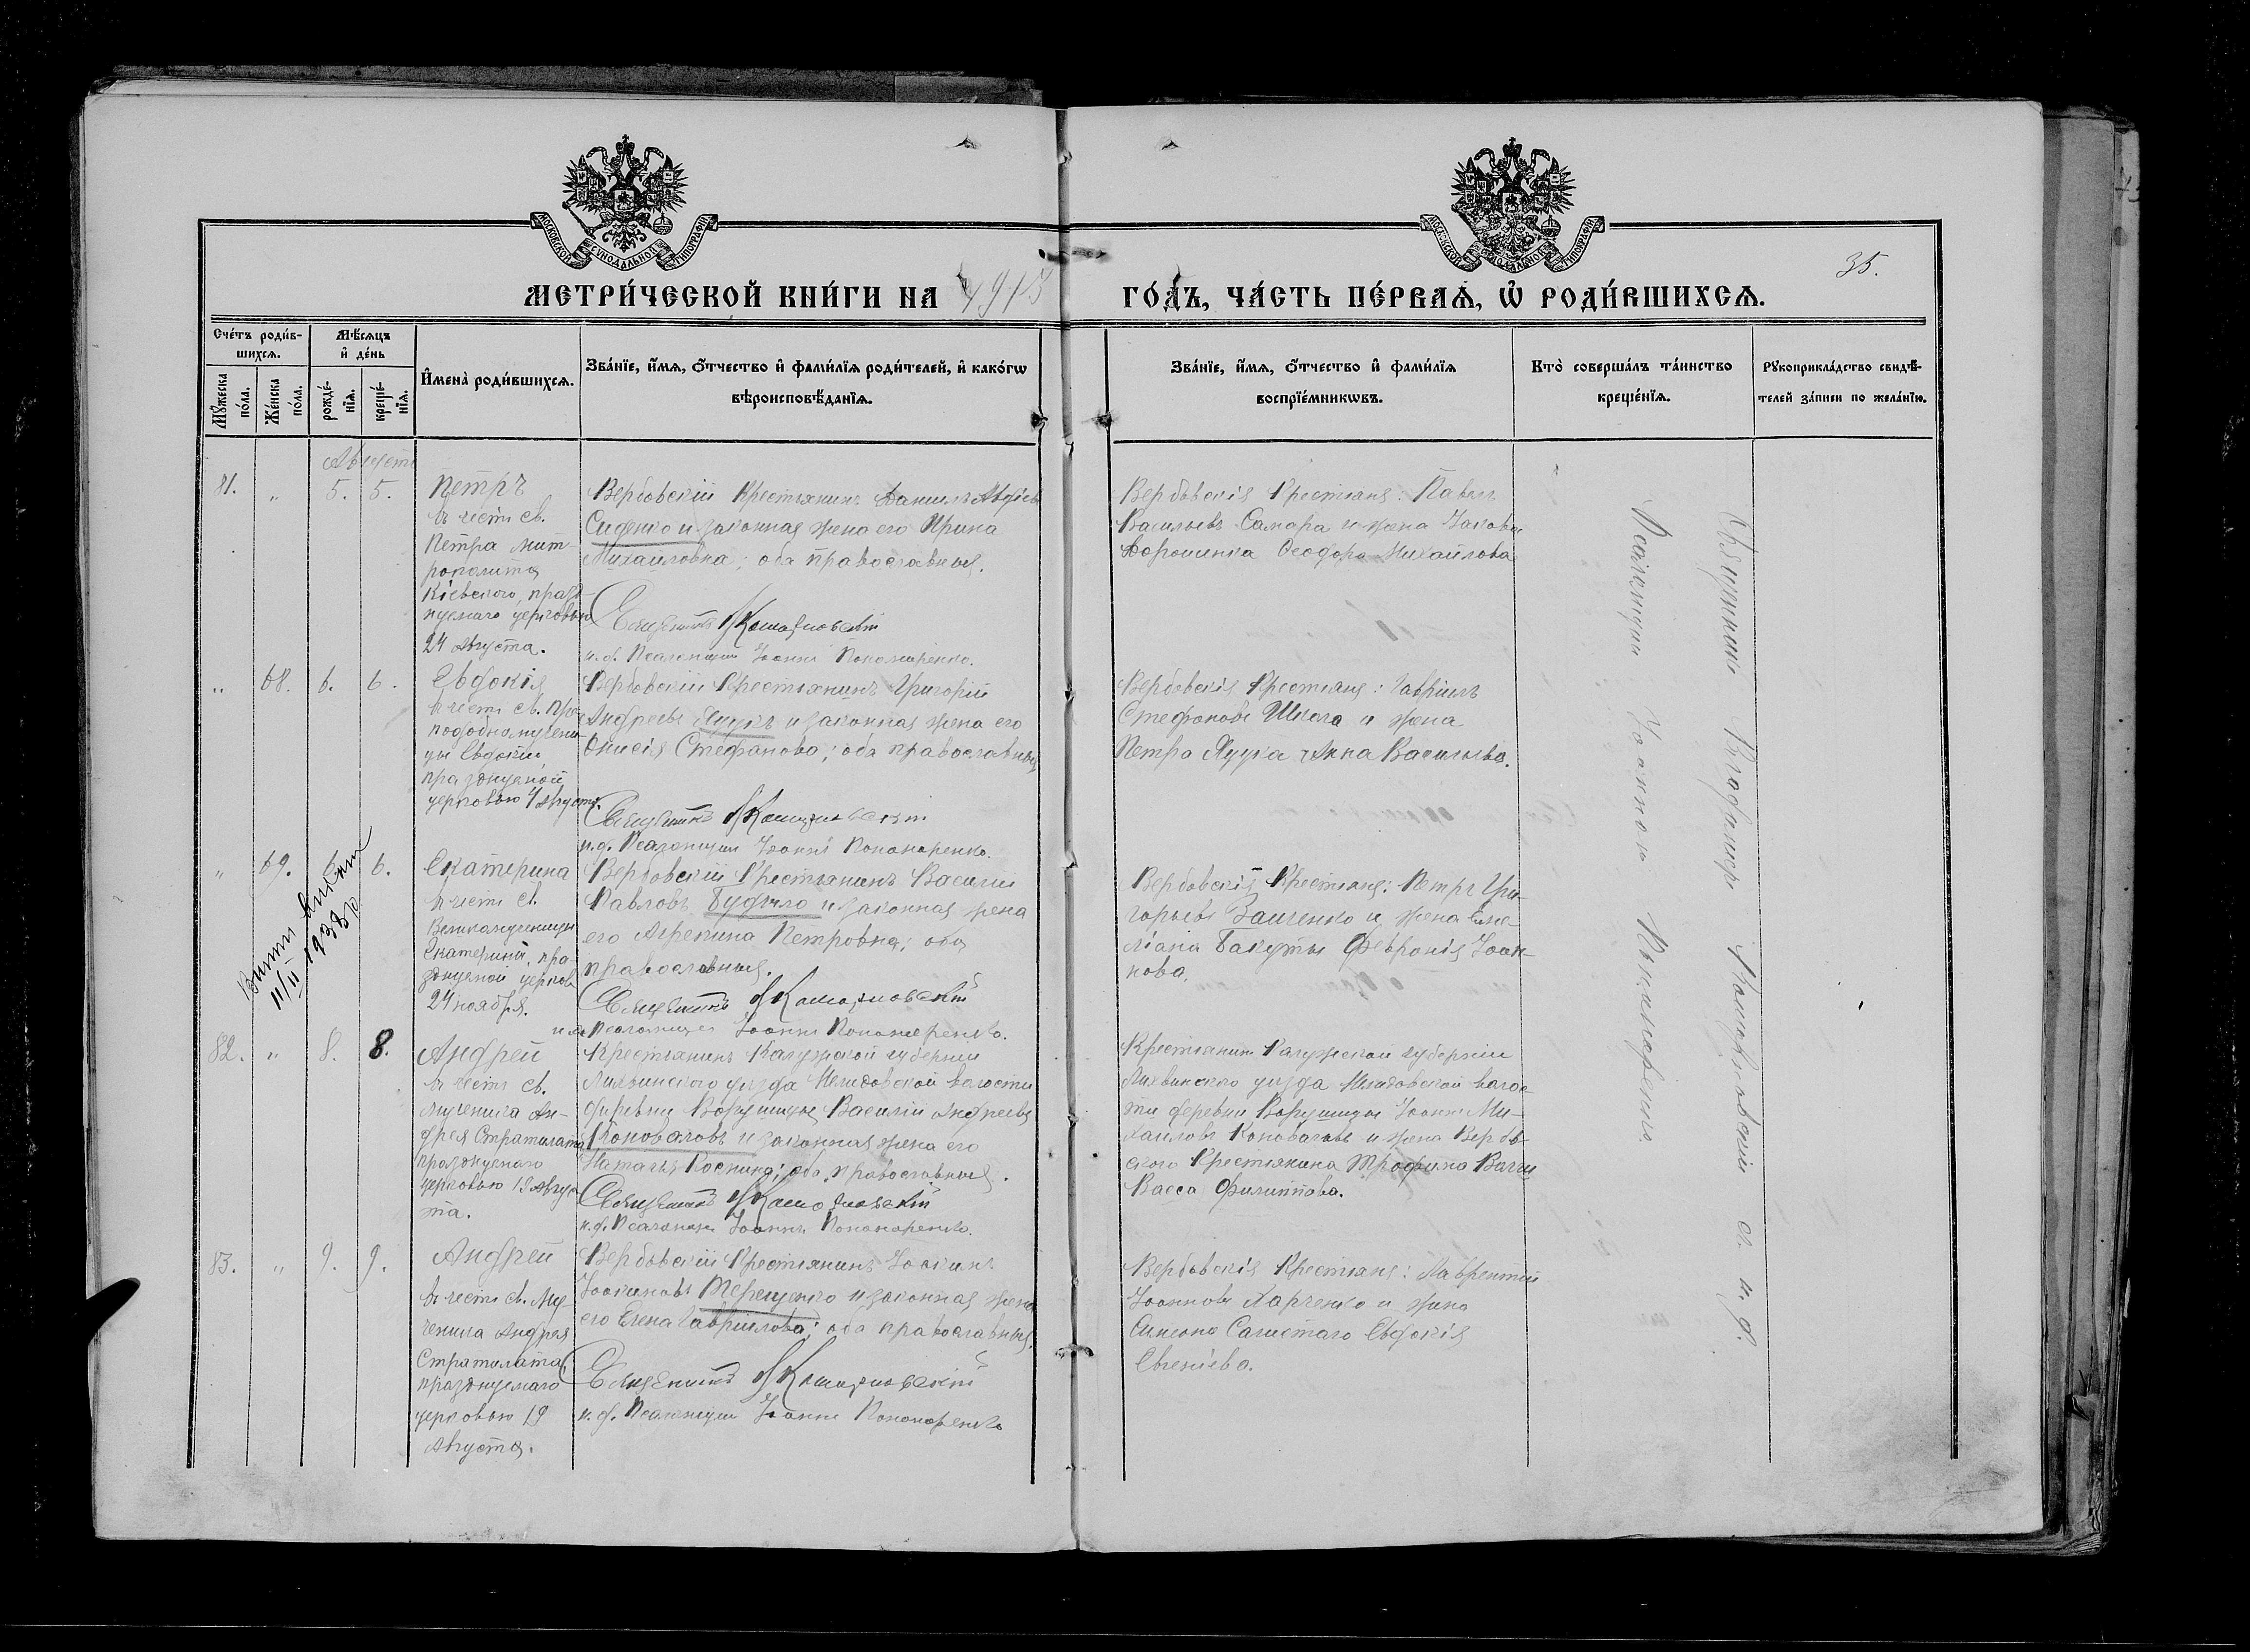 МОСКОВСКОЙ СѴНОДАЛЬНОЙ ТИПОГРАФІИ
МОСКОВСКОЙ СѴНОДАЛЬНОЙ ТИПОГРАФІИ
35.
МЕТРИ́ЧЕСКОЙ КНИ́ГИ НА 1913 ГО́ДЪ, ЧА́СТЬ ПЕ́РВАѦ, Ѡ҆ РОДИ́ВШИХСѦ.
Сче́тъ роди́в-
шихсѧ.
Мꙋ́жеска
по́ла.
Же́нска
по́ла.
Мѣ́сѧцъ
и҆ де́нь
рожде́-
нїѧ.
креще́-
нїѧ.
И҆мена̀ роди́вшихсѧ.
Зва́нїе, и҆́мѧ, ѻ҆́тчество и҆ фами́лїѧ роди́телей, и҆ како́гѡ
вѣроисповѣ́данїѧ.
Зва́нїе, и҆́мѧ, ѻ҆́тчество и҆ фами́лїѧ
воспрїе́мникѡвъ.
Кто̀ соверша́лъ та́инство
креще́нїѧ.
Рꙋкоприкла́дство свидѣ́-
телей за́писи по жела́нїю.
Августъ
81. " 5. 5.
Петръ
въ честь св.
Петра мит-
рополита
Кіевского, празд-
нуемаго церковью
24 Августа.
Вербовскій Крестьянинъ Даніилъ Авдіевъ
Сиденко и законная жена его Ирина
Михайловна; оба православныя.
Священникъ
и.д. Псаломщик Іоаннъ Пономаренко.
Вербовскія Крестьяне: Павелъ
Васильевъ Самара и жена Іакова
Дорошенка Ѳеодора Михайлова
" 68. 6. 6.
Евдокія
въ честь св. пре-
подобномучени-
цы Евдокіи,
празднуемой
церковью 4 Августа.
Вербовскій Крестьянинъ Григорій
Андреевъ Яцукъ и законная жена его
Онисія Стефанова; оба православныя
Священникъ
и.д. Псаломщик Іоаннъ Пономаренко.
Вербовскія Крестьяне: Гавріилъ
Стефановъ Школа и жена
Петра Яцука Анна Васильева.
" 69. 6. 6.
11/II 1938 р
Екатерина
въ честь св.
Великомученицы
Екатерины, пра-
зднуемой церков.
24 ноября.
Вербовскій Крестьянинъ Василій
Павловъ Будыло и законная жена
его Агрепина Петровна; оба
православныя.
Священникъ
и.д. Псаломщик Іоаннъ Пономаренко.
Вербовскія Крестьяне: Петръ Гри-
горьевъ Заиченко и жена Еме-
ліана Бакуты Февронія Іоан-
нова.
82. " 8. 8.
Андрей
въ честь св.
мученика Ан-
дрея Стратилата
празднуемаго
церковью 19 Авгус-
та.
Крестьянинъ Калужской губерніи
Лихвинского уезда волости
деревни Василій Андреевъ
Коноваловъ и законная жена его
Наталья; оба православныя.
Священникъ
и.д. Псаломщик Іоаннъ Пономаренко.
Крестьянинъ Калужской губерніи
Лихвинского уезда волос-
ти деревни Іоаннъ Ми-
хайловъ Коноваловъ и жена Вербов-
ского Крестьянина Трофима
Васса Филиппова.
83. " 9. 9.
Андрей
въ честь св. Му-
ченика Андрея
Стратилата,
празднуемаго
церковью 19
Августа.
Вербовскій Крестьянинъ Іоакимъ
Іоакимовъ Терещенко и законная жена
его Елена Гавріилова; оба православныя.
Священникъ
и.д. Псаломщик Іоаннъ Пономаренко
Вербовскія Крестьяне: Лаврентій
Іоанновъ Харченко и жена
Симеона Евдокія
Евгеніева.
Владиміръ
Псаломщик Іоанномъ Пономаренко